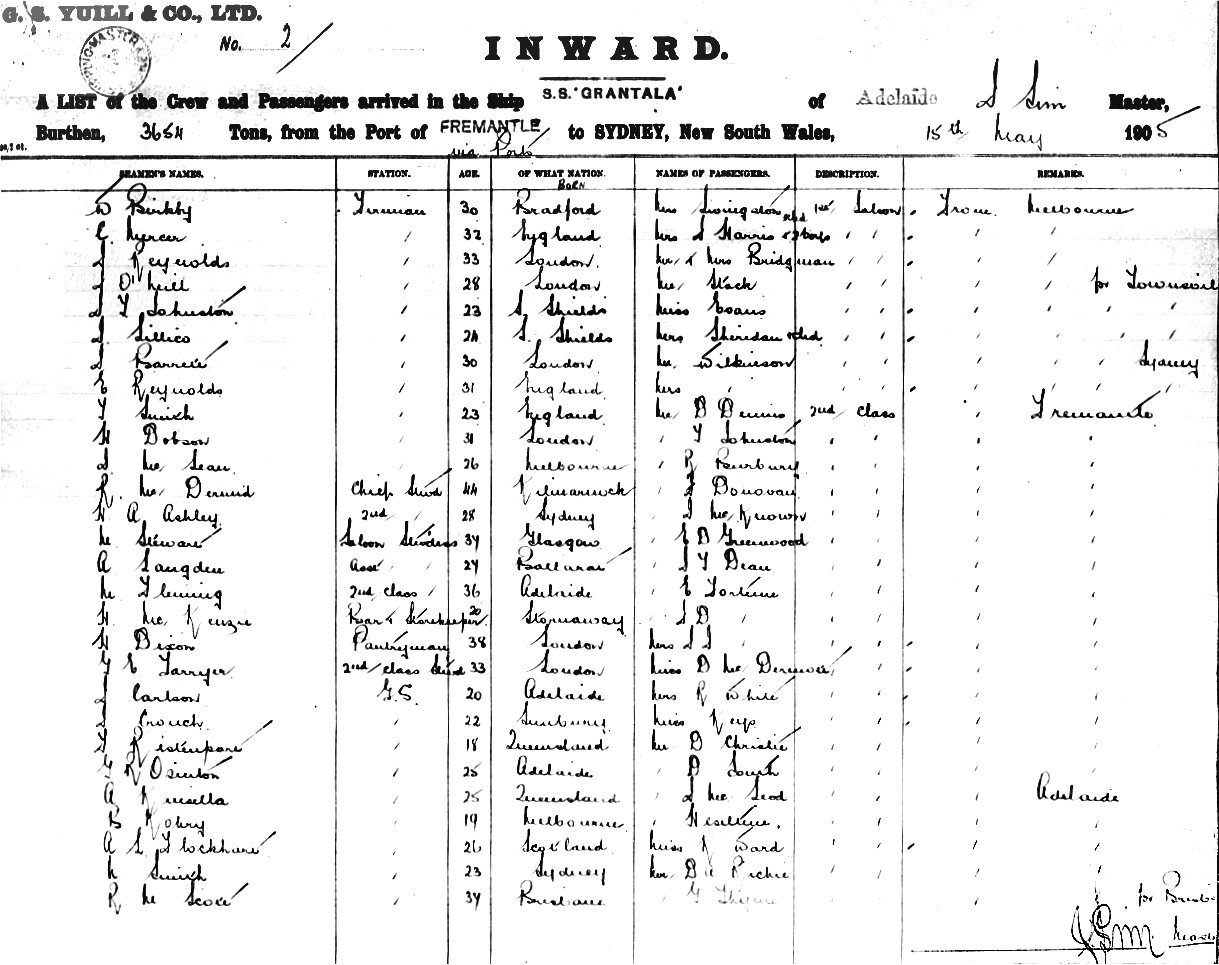 G. S. YUILL & CO., LTD.
No. 2
INWARD.
S.S. 'GRANTALA'
A LIST of the Crew and Passengers arrived in the Ship of Adelaide J Sim Master,
Burthen, 3654 Tons, from the Port of FREMANTLE to SYDNEY, New South Wales, 15th May 1905
via Ports
SEAMEN'S NAMES. STATION. AGE. OF WHAT NATION. NAMES OF PASSENGERS. DESCRIPTION. REMARKS.
Born
W Binkby Fireman 30 Bradford Mrs Livingston 1st Saloon From Melbourne
C. Mercer " 32 England Mrs Harris " " "
J Reynolds " 33 London Mr & Mrs Bridgman " " " "
J O'Neill " 28 London Mr Stack " " " for
J T Johnston " 23 S. Shields Miss Evans " " " " "
J. Lillico " 24 S. Shields Mrs Sheridan & chd " " " " "
J Barrett " 30 London Mr Wilkinson " " " " Sydney
E Reynolds " 31 England Mrs " " " " "
T Smith " 23 England Mr D Dennis 2nd Class " Fremantle
H Dobson " 31 London " T Johnston " " " "
J McLean " 26 Melbourne " R Burbury " " " "
R. McDermid Chief Stwd 44 Kilmarnock " J Donovan " " " "
H A Ashley 2nd " 28 Sydney " J McKnown " " " "
M Stewart Saloon Stwdess 34 Glasgow " E D Greenwood " " " "
A Langden Asst " 24 Ballarat " J T Dean " " " "
M Fleming 2nd Class " 36 Adelaide " E Fortune " " " "
H McKenzie & Storekeeper 20 Stornaway " J D " " " "
H Dixon Pantryman 38 London Mrs J J " " " "
E Tarryer 2nd Class Stwd 33 London Miss D McDermott " " " "
J Carlson G.S. 20 Adelaide Mrs R White " " " "
J Crouch " 22 Sunbury Miss Keys " " " "
Ristenpart " 18 Queensland Mr D Christie " " " "
R Osinton " 25 Adelaide " D South " " " "
A Kinsella " 25 Queensland " J McLeod " " " Adelaide
B Kohry " 19 Melbourne " Heseltine. " " " "
A L Flockhart " 26 Scotland Miss K Ward " " " "
N Smith " 23 Sydney Mr D Richie " " " "
R M Scott " 34 Brisbane " G " " " for
J Sim